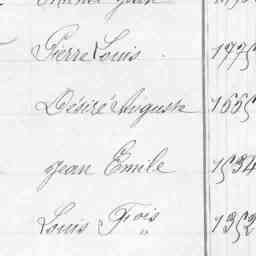 Pierre Louis 1775
Désiré Auguste 1665
Jean Emile 1534
Louis Fois 1352